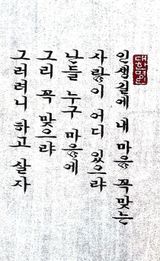 대한명인
인생길에 내 마음 꼭 맞는
사람이 어디 있으랴
난들 누구 마음에
그리 꼭 맞으랴
그러려니 하고 살자